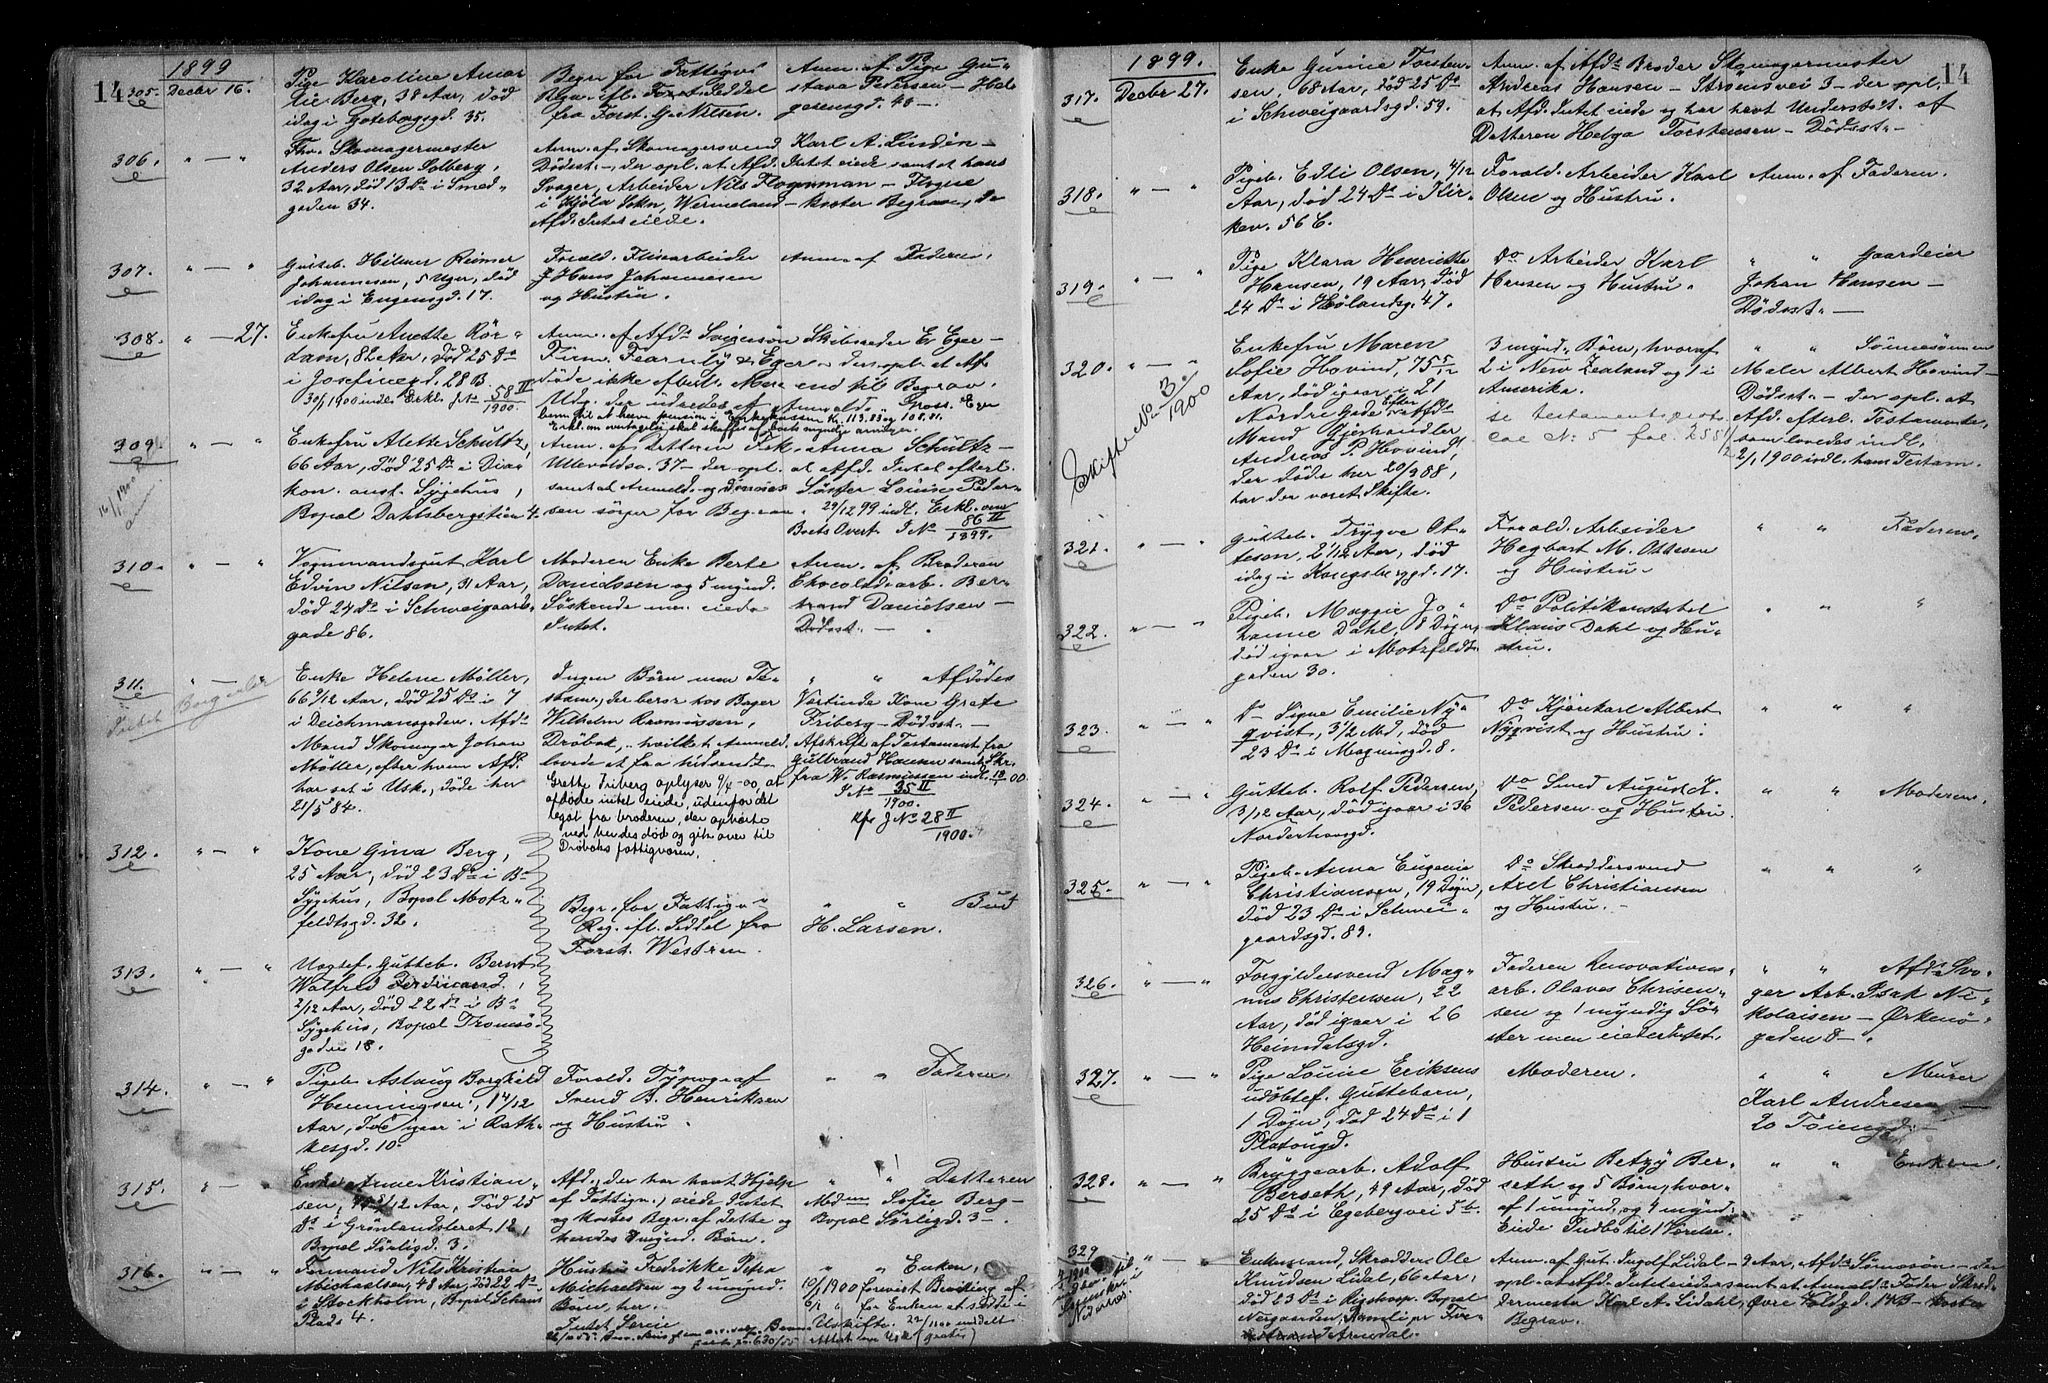 14
1899
305. Decbr 16.
Pige Karoline Ama-
lie Berg, 38 Aar, død
idag i Gøteborgsgd. 35.
Begr. for Fattigv.
Regn. ifl. Forst. Seddel
fra Forst. G. Nilsen.
Anm. af Pige Gu-
stava Petersen - Hel-
gesensgd. 40 -
306. " — "
Fhv. Skomagermester
Anders Olsen Solberg,
32 Aar, død 13 Ds i Smed-
gaden 34.
Anm. af Skomagersvend Karl A. Lindén -
Dødsst. -, der opl. at Afd. Intet eiede samt at hans
Svager, Arbeider Nils
i Kjöla Sokn, Wermeland - koster Begravn, da
Afd. Intet eiede.
307. " — "
Gutteb. Hilmer Reimer
Johannesen, 5 Uger, død
idag i Eugensgd. 17.
Foræld. Flisarbeider
Hans Johannesen
og Hustru.
Anm. af Faderen.
308. " — 27.
Enkefru Anette Rör-
dam, 82 Aar, død 25 Ds
i Josefinegd. 28 B.
30/1 1900 indl. Erkl. J No 58 II
1900.
Anm. af Afds Svigersøn Skibsreder Er. Eger -
Firm. Fearnly & Eger - der opl. at Af-
døde ikke efterl. Mere end til Begrav.
Udg. der udredes af Anmeld. Gross. Eger
309. " — "
Enkefru Alette Schultz,
66 Aar, død 25 Ds i Dia-
kon. anst. Sygehus,
Bopæl Dahlsbergstien 4.
Anm. af Datteren Frk. Anna Schultz -
Ullevoldsv. 37 - der opl. at Afd. Intet efterl.
samt at Anmeld. og dennes Søster Louise Peder-
sen sørger for Begrav. 29/12 99 indl. Erkl. om
Boets Overt. J No 86 II
1899.
310. " — "
Vognmandsgut Karl
Edvin Nilsen, 31 Aar,
død 24 Ds i Schweigaards-
gade 86.
Moderen Enke Berte
Danielsen og 5 mynd.
Søskende men eiede
Intet.
Anm. af Broderen
Ekvoldsarb. Ber-
trand Danielsen -
Dødsst. -
311. " — "
Enke Helene Møller,
66 9/12 Aar, død 25 Ds i 7
i Deichmansgaden. Afds
Mand Skomager Johan
Møller, efter hvem Afd.
har sat i Usk., døde her
21/5 84.
Ingen Børn men Te-
stam., der beror hos Bager
Wilhelm Rasmussen,
Drøbak, hvilket Anmeld.
lovede at faa hidsendt.
Grethe Friberg oplyser 9/4-00, at
afdøde intet eiede, udenfor det
legat fra broderen, der ophørte
ved hendes død og gik over til
Drøbaks fattigvæsen.
" " Afdødes
Værtinde Kone Grete
Friberg - Dødsst. -
Afskrift af Testament fra
Gulbrand Hansen samt Skr.
fra W. Rasmussen indl. 00.
J No 35 II
1900.
Kfr J No 28 II
1900.
312. " — "
Kone Gina Berg,
25 Aar, død 23 Ds i Bs
Sygehus, Bopæl Motz-
feldtsgd. 32.
Begr. for Fattigv.
Reg. ifl. Seddel fra
Forst. Westren.
" " Bud
H. Larsen.
313. " — "
Uegtef. Gutteb. Bernt
Walfred Ferdinand,
2/12 Aar, død 22 Ds i Bs
Sygehus, Bopæl Tromsø-
gaden 18.
314. " — "
Pigeb. Aslaug Borghild
Henningsen, 1 4/12
Aar, død igaar i Rath-
kesgd. 10.
Foræld. Typograf
Svend B. Henriksen
og Hustru.
" " Faderen.
315. " — "
Enke Anne Kristian-
sen, /12 Aar, død 25
Ds i Grønlandsleret 12,
Bopæl Sørligd. 3.
Afd., der har havt Hjælp
af Fattigv., eiede Intet
og kostes Begr. af dette og
hendes mynd. Børn.
" " Datteren
Mdm Sofie Berg -
Bopæl Sørligd. 3 -
316. " — "
Formand Nils Kristian
Michaelsen, 48 Aar, død 22 Ds
i Stockholm, Bopæl Schous
Plads 4.
Hustru Fredrikke Petra
Michaelsen og 2 umynd.
Børn, her.
" " Enken,
10/1 1900 forevist Bevilling af
6/1 " for Enken at sidde i
Uskifte.
14
1899.
317. Decbr 27.
Enke Gunnie Torsten-
sen, 68 Aar, død 25 Ds
i Schweigaardsgd. 59.
Anm. af Afds Broder Skomagermester
Andreas Hansen - Strömsvei 3 - der opl.
at Afd. Intet eiede og har havt Underst. af
Datteren Helga Torstensen - Dødsst. -
318. " — "
Pigeb. Edli Olsen, 4/12
Aar, død 24 Ds i Kir-
kev. 56 E.
Foræld. Arbeider Karl
Olsen og Hustru.
Anm. af Faderen.
319. " — "
Pige Klara Henriette
Hansen, 19 Aar, død
24 Ds i Hølandsg. 47.
Do Arbeider Karl
Hansen og Hustru.
" " Gaardeier
Johan Hansen -
Dødsst. -
320. " — "
Skifte No 3/1900
Enkefru Maren
Sofie Hovind, 75 5/12
Aar, død igaar i 21
Nordre Gade. Efter Afds
Mand Gjørhandler
Andreas P. Hovind,
der døde her 20/9 88,
har der været Skifte.
3 mynd. Børn, hvoraf
2 i New Zealand og 1 i
Amerika.
se testamentsprot.
No 5 fol. 255
" " Sønnesønnen
Maler Albert Hovind -
Dødsst. - der opl. at
Afd. efterl. Testamente,
som lovedes indl.
2/1 1900 indl. ham Testam.
321. " — "
Gutteb. Trygve Ot-
tesen, 2 1/12 Aar, død
idag i Kongsberggd. 17.
Foræld. Arbeider
Hegbart M. Ottesen
og Hustru.
" " Faderen.
322. " — "
Pigeb. Maggie Jo-
hanne Dahl, 8 Døgn,
død igaar i Motzfeldts-
gaden 30.
Do Politikonstabel
Klaus Dahl og Hu-
stru.
" " "
323. " — "
Do Signe Emilie Ny-
qvist, 3 1/2 Md, død
23 Ds i Magnusgd. 8.
Do Kjørekarl Albert
Nyqvist og Hustru.
" " "
324. " — "
Gutteb. Rolf Pedersen,
3/12 Aar, død igaar i 36
Norderhovsgd.
Do Smed August K.
Pedersen og Hustru.
" " Moderen.
325. " — "
Pigeb. Anna Eugenie
Christiansen, 19 Døgn,
død 23 Ds i Schwei-
gaardsgd. 89.
Do Skræddersvend
Axel Christiansen
og Hustru.
" " "
326. " — "
Forgyldersvend Mag-
nus Christensen, 22
Aar, død igaar i 26
Heimdalsgd.
Faderen Renovations-
arb. Olaves Chrisen-
sen og 1 myndig Sø-
ster men eiede Intet.
" " Afds Svo-
ger Arb. Isak Ni-
kolaisen - Ørkenø-
gaden 8 -.
327. " — "
Pige Louise Eriksens
udøbtef. Guttebarn,
1 Døgn, død 24 Ds i 1
Platousgd.
Moderen.
" " Murer
Karl Andresen -
20 Tøiengd. -
328. " — "
Bryggearb. Adolf
Berseth, 49 Aar, død
25 Ds i Egebergvei 5 b.
Hustru Betzy Ber-
seth og 5 Børn, hvor-
af 1 umynd. og 4 mynd.
Eiede Indbo til l Værdi.
" " Enken.
329 " —
Enkemand, Skrædder Ole
Knudsen Lidal, 66 Aar,
død 23 Ds i Rigshosp. Bopæl
Nergaarden,
Arendal.
Anm. af Gut. Ingolf Lidal - 9 Aar, Afds Sønnesøn - der
opl. at Afd. Intet eiede samt at Anmelds Fader Skræd-
dermester Karl A. Lidahl, Øvre Voldgd. 14B - koster
Begrav.